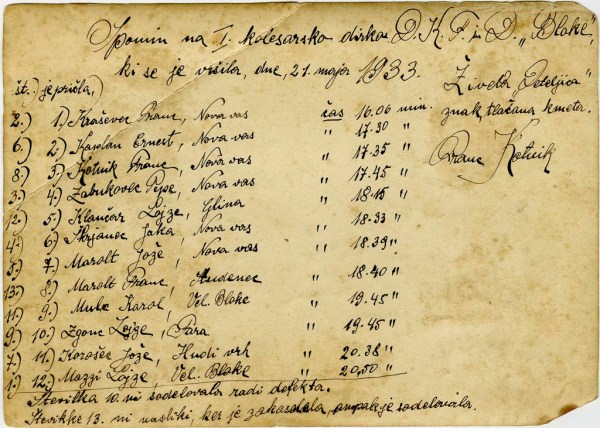 Spomin na I. kolesarsko dirko D.K.F. i D. „Bloke",
ki se je vršila, dne, 21. maja 1933.
št.) je prišla,)
2.) 1.) Kraševec Franc, Nova vas čas 16.06 min.
6.) 2.) Kandan Ernest, Nova vas " 17.30 "
8.) 3.) Kotnik Franc, Nova vas " 17.35 "
3.) 4.) Zabukovec Pepe, Nova vas " 17.45 "
12.) 5.) Klančar Lojze, Glina " 18.15 "
4.) 6.) Škrjanec Jaka, Nova vas " 18.33 "
5.) 7.) Marolt Jože, Nova vas " 18.39 "
13.) 8.) Marolt Franc, Studenec " 18.40 "
11.) 9.) Mule Karol, Vel. Bloke " 19.45 "
9.) 10.) Zgonc Lojze, Fara " 19.45 "
7.) 11.) Korošec Jože, Hudi vrh " 20.38 "
1.) 12.) Mazzi Lojze, Vel. Bloke " 20,50 "
Številka 10. ni sodelovala radi defekta.
Številke 13. ni na sliki, ker je zakasnela, ampak je sodelovala.
Živela „Deteljica"
znak tlačana kmeta.
Franc Kotnik